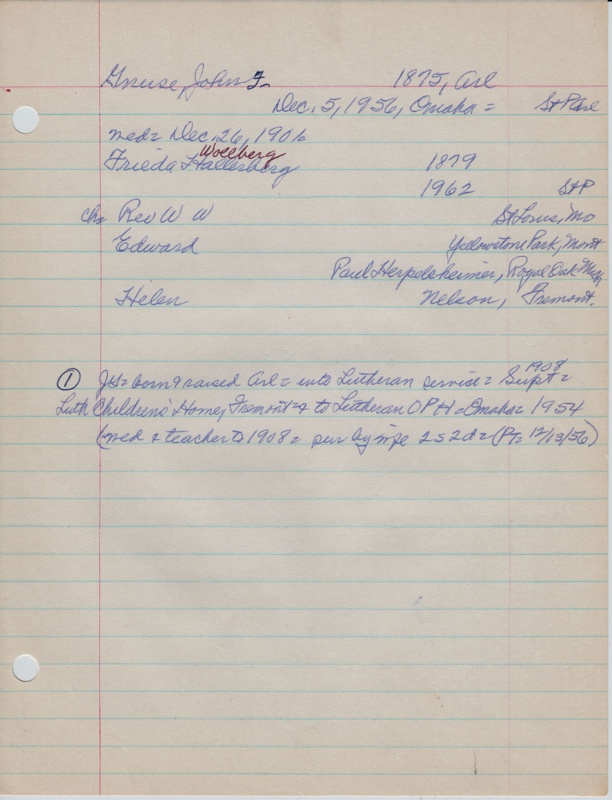 Gnuse, John F 1875, Arl
Dec. 5, 1956, Omaha = St P Arl
med = Dec. 26, 1906
Wollberg
Frieda Hallerberg 1879
1962 St P
ch= Rev W W St Louis, Mo
Edward Yellowstone Park, Mont
Paul Herpelsheimer, Royal Oak Mich
Helen Nelson, Fremont.
1908
① JG = born & raised Arl = into Lutheran service = Supt =
Luth Children's Home, Fremont = & to Lutheran O P H = Omaha = 1954
(med & teacher to 1908 = sur by wife 2 s 2 d = (PT = 12/13/56)